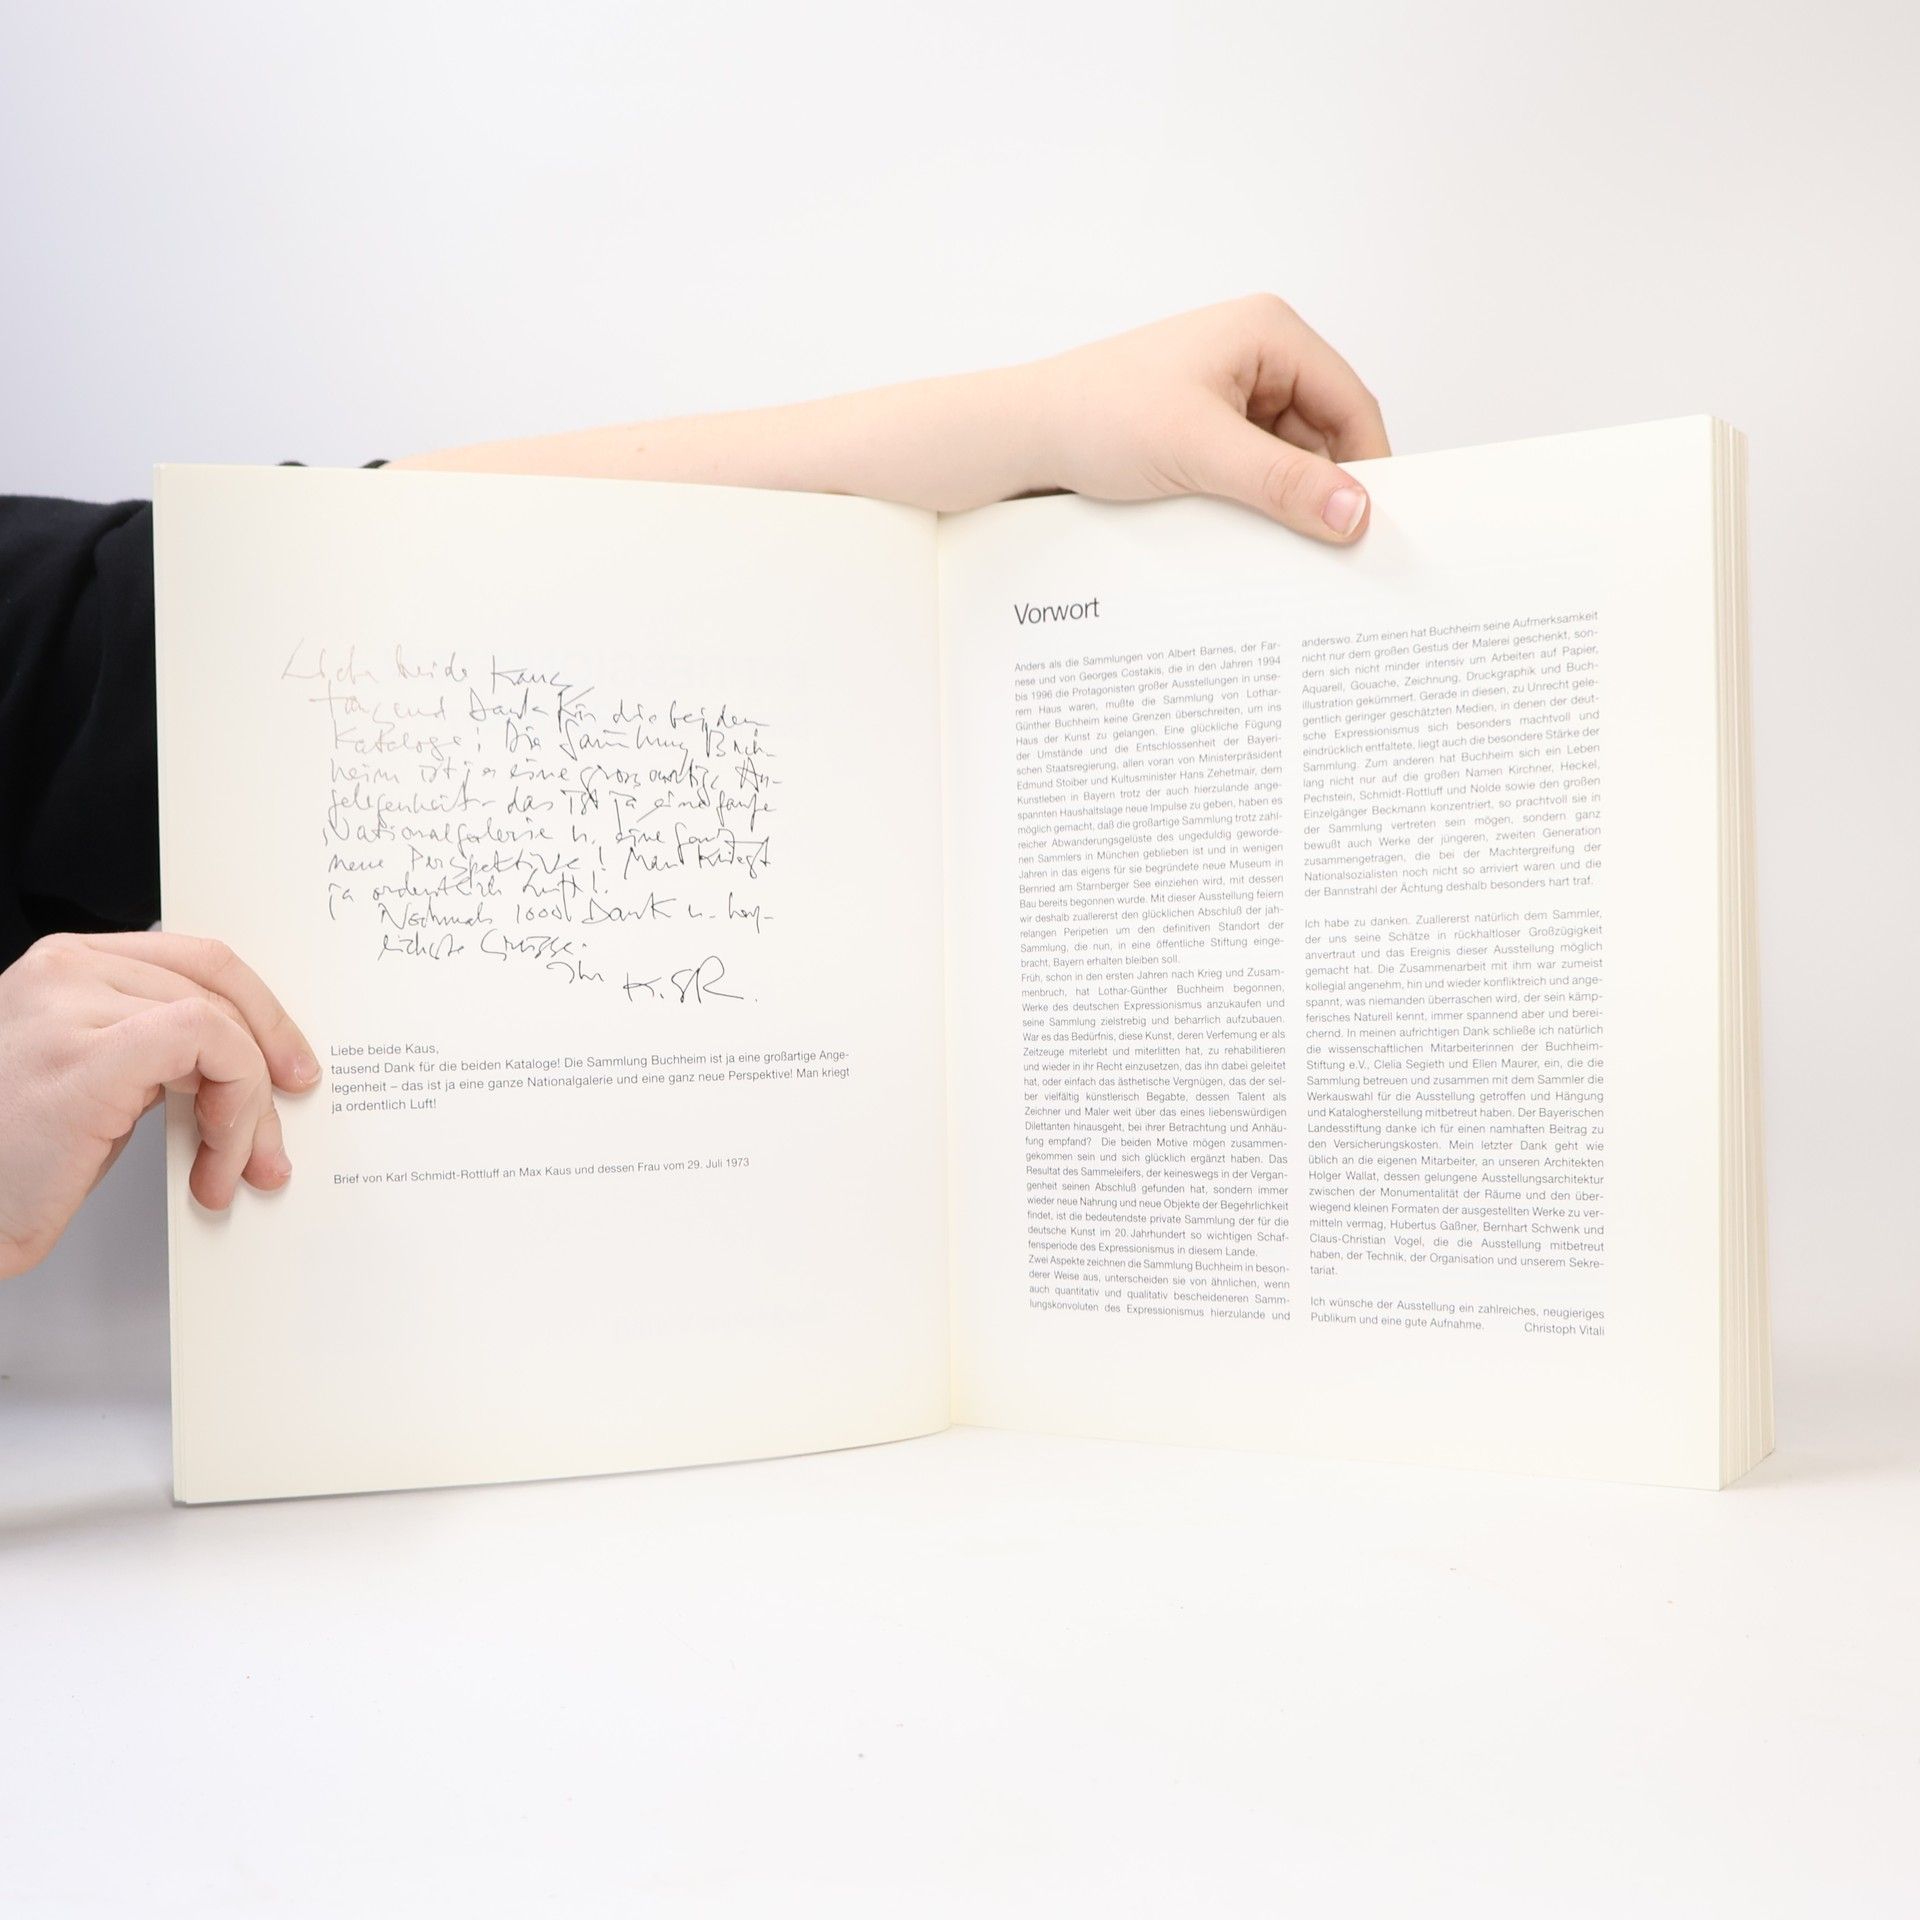 Liebe beide Kaus,
tausend Dank für die beiden
Kataloge! Die Sammlung Buch-
heim ist ja eine grossartige An-
gelegenheit - das ist ja eine ganze
Nationalgalerie u. eine ganz
neue Perspektive! Man kriegt
ja ordentlich Luft!
Nochmals 1000 Dank u. herz-
lichste Grüsse.
Ihr K. SR.
Liebe beide Kaus,
tausend Dank für die beiden Kataloge! Die Sammlung Buchheim ist ja eine großartige Ange-
legenheit – das ist ja eine ganze Nationalgalerie und eine ganz neue Perspektive! Man kriegt
ja ordentlich Luft!
Brief von Karl Schmidt-Rottluff an Max Kaus und dessen Frau vom 29. Juli 1973
Vorwort
Anders als die Sammlungen von Albert Barnes, der Far-
nese und von Georges Costakis, die in den Jahren 1994
bis 1996 die Protagonisten großer Ausstellungen in unse-
rem Haus waren, mußte die Sammlung von Lothar-
Günther Buchheim keine Grenzen überschreiten, um ins
Haus der Kunst zu gelangen. Eine glückliche Fügung
der Umstände und die Entschlossenheit der Bayeri-
schen Staatsregierung, allen voran von Ministerpräsident
Edmund Stoiber und Kultusminister Hans Zehetmair, dem
Kunstleben in Bayern trotz der auch hierzulande ange-
spannten Haushaltslage neue Impulse zu geben, haben es
möglich gemacht, daß die großartige Sammlung trotz zahl-
reicher Abwanderungsgelüste des ungeduldig geworde-
nen Sammlers in München geblieben ist und in wenigen
Jahren in das eigens für sie begründete neue Museum in
Bernried am Starnberger See einziehen wird, mit dessen
Bau bereits begonnen wurde. Mit dieser Ausstellung feiern
wir deshalb zuallererst den glücklichen Abschluß der jah-
relangen Peripetien um den definitiven Standort der
Sammlung, die nun, in eine öffentliche Stiftung einge-
bracht, Bayern erhalten bleiben soll.
Früh, schon in den ersten Jahren nach Krieg und Zusam-
menbruch, hat Lothar-Günther Buchheim begonnen,
Werke des deutschen Expressionismus anzukaufen und
seine Sammlung zielstrebig und beharrlich aufzubauen.
War es das Bedürfnis, diese Kunst, deren Verfemung er als
Zeitzeuge miterlebt und miterlitten hat, zu rehabilitieren
und wieder in ihr Recht einzusetzen, das ihn dabei geleitet
hat, oder einfach das ästhetische Vergnügen, das der sel-
ber vielfältig künstlerisch Begabte, dessen Talent als
Zeichner und Maler weit über das eines liebenswürdigen
Dilettanten hinausgeht, bei ihrer Betrachtung und Anhäu-
fung empfand? Die beiden Motive mögen zusammen-
gekommen sein und sich glücklich ergänzt haben. Das
Resultat des Sammeleifers, der keineswegs in der Vergan-
genheit seinen Abschluß gefunden hat, sondern immer
wieder neue Nahrung und neue Objekte der Begehrlichkeit
findet, ist die bedeutendste private Sammlung der für die
deutsche Kunst im 20. Jahrhundert so wichtigen Schaf-
fensperiode des Expressionismus in diesem Lande.
Zwei Aspekte zeichnen die Sammlung Buchheim in beson-
derer Weise aus, unterscheiden sie von ähnlichen, wenn
auch quantitativ und qualitativ bescheideneren Samm-
lungskonvoluten des Expressionismus hierzulande und
anderswo. Zum einen hat Buchheim seine Aufmerksamkeit
nicht nur dem großen Gestus der Malerei geschenkt, son-
dern sich nicht minder intensiv um Arbeiten auf Papier,
Aquarell, Gouache, Zeichnung, Druckgraphik und Buch-
illustration gekümmert. Gerade in diesen, zu Unrecht gele-
gentlich geringer geschätzten Medien, in denen der deut-
sche Expressionismus sich besonders machtvoll und
eindrücklich entfaltete, liegt auch die besondere Stärke der
Sammlung. Zum anderen hat Buchheim sich ein Leben
lang nicht nur auf die großen Namen Kirchner, Heckel,
Pechstein, Schmidt-Rottluff und Nolde sowie den großen
Einzelgänger Beckmann konzentriert, so prachtvoll sie in
der Sammlung vertreten sein mögen, sondern ganz
bewußt auch Werke der jüngeren, zweiten Generation
zusammengetragen, die bei der Machtergreifung der
Nationalsozialisten noch nicht so arriviert waren und die
der Bannstrahl der Ächtung deshalb besonders hart traf.
Ich habe zu danken. Zuallererst natürlich dem Sammler,
der uns seine Schätze in rückhaltloser Großzügigkeit
anvertraut und das Ereignis dieser Ausstellung möglich
gemacht hat. Die Zusammenarbeit mit ihm war zumeist
kollegial angenehm, hin und wieder konfliktreich und ange-
spannt, was niemanden überraschen wird, der sein kämp-
ferisches Naturell kennt, immer spannend aber und berei-
chernd. In meinen aufrichtigen Dank schließe ich natürlich
die wissenschaftlichen Mitarbeiterinnen der Buchheim-
Stiftung e.V., Clelia Segieth und Ellen Maurer, ein, die die
Sammlung betreuen und zusammen mit dem Sammler die
Werkauswahl für die Ausstellung getroffen und Hängung
und Katalogherstellung mitbetreut haben. Der Bayerischen
Landesstiftung danke ich für einen namhaften Beitrag zu
den Versicherungskosten. Mein letzter Dank geht wie
üblich an die eigenen Mitarbeiter, an unseren Architekten
Holger Wallat, dessen gelungene Ausstellungsarchitektur
zwischen der Monumentalität der Räume und den über-
wiegend kleinen Formaten der ausgestellten Werke zu ver-
mitteln vermag, Hubertus Gaßner, Bernhart Schwenk und
Claus-Christian Vogel, die die Ausstellung mitbetreut
haben, der Technik, der Organisation und unserem Sekre-
tariat.
Ich wünsche der Ausstellung ein zahlreiches, neugieriges
Publikum und eine gute Aufnahme. Christoph Vitali